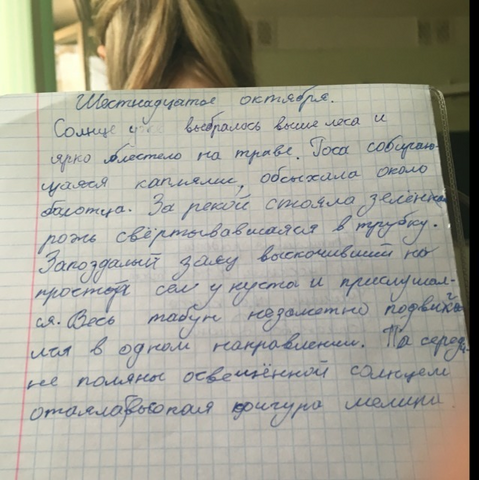 Шестнадцатое октября.
Солнце уже выбралось выше леса и
ярко блестело на траве. Роса собираю-
щаяся каплями, обсыхала около
болотца. За рекой стояла зелёная
рожь свёртывавшаяся в трубку.
Запоздалый заяц выскочивший на
простор сел у куста и прислушал-
ся. Весь табун незаметно подвигa-
лся в одном направлении. На середи-
не поляны освещённой солнцем
стояла высокая фигура мелина.